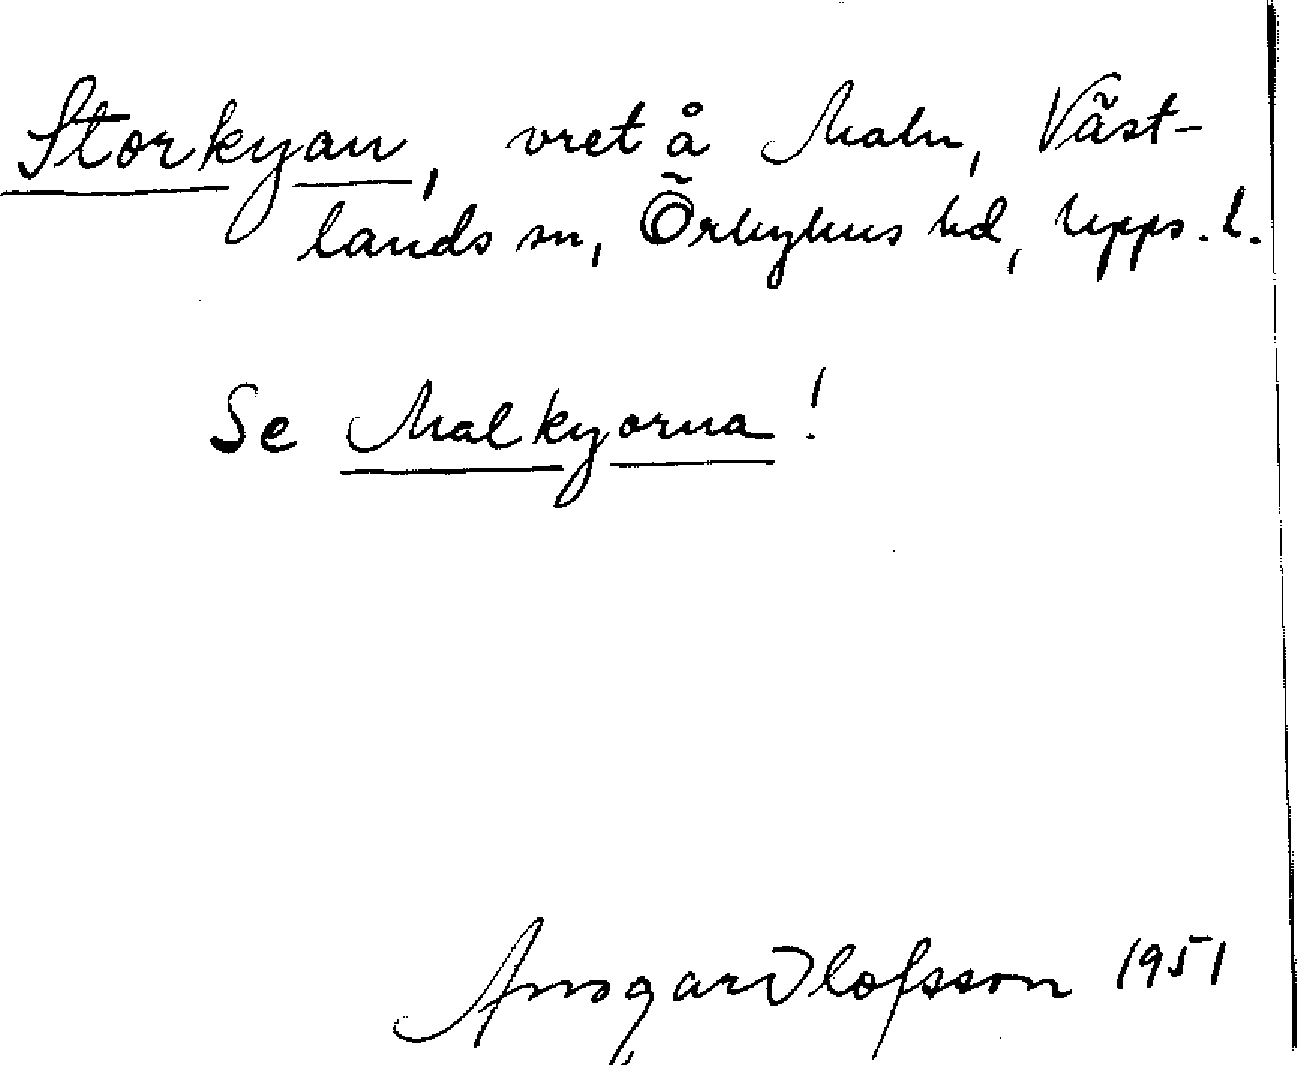 Storkyan, vret å Malm, Väst-
lands sn, Örbyhus hd, Upps. l.
Se Malkyorna!
Ansgar Olofsson 1951